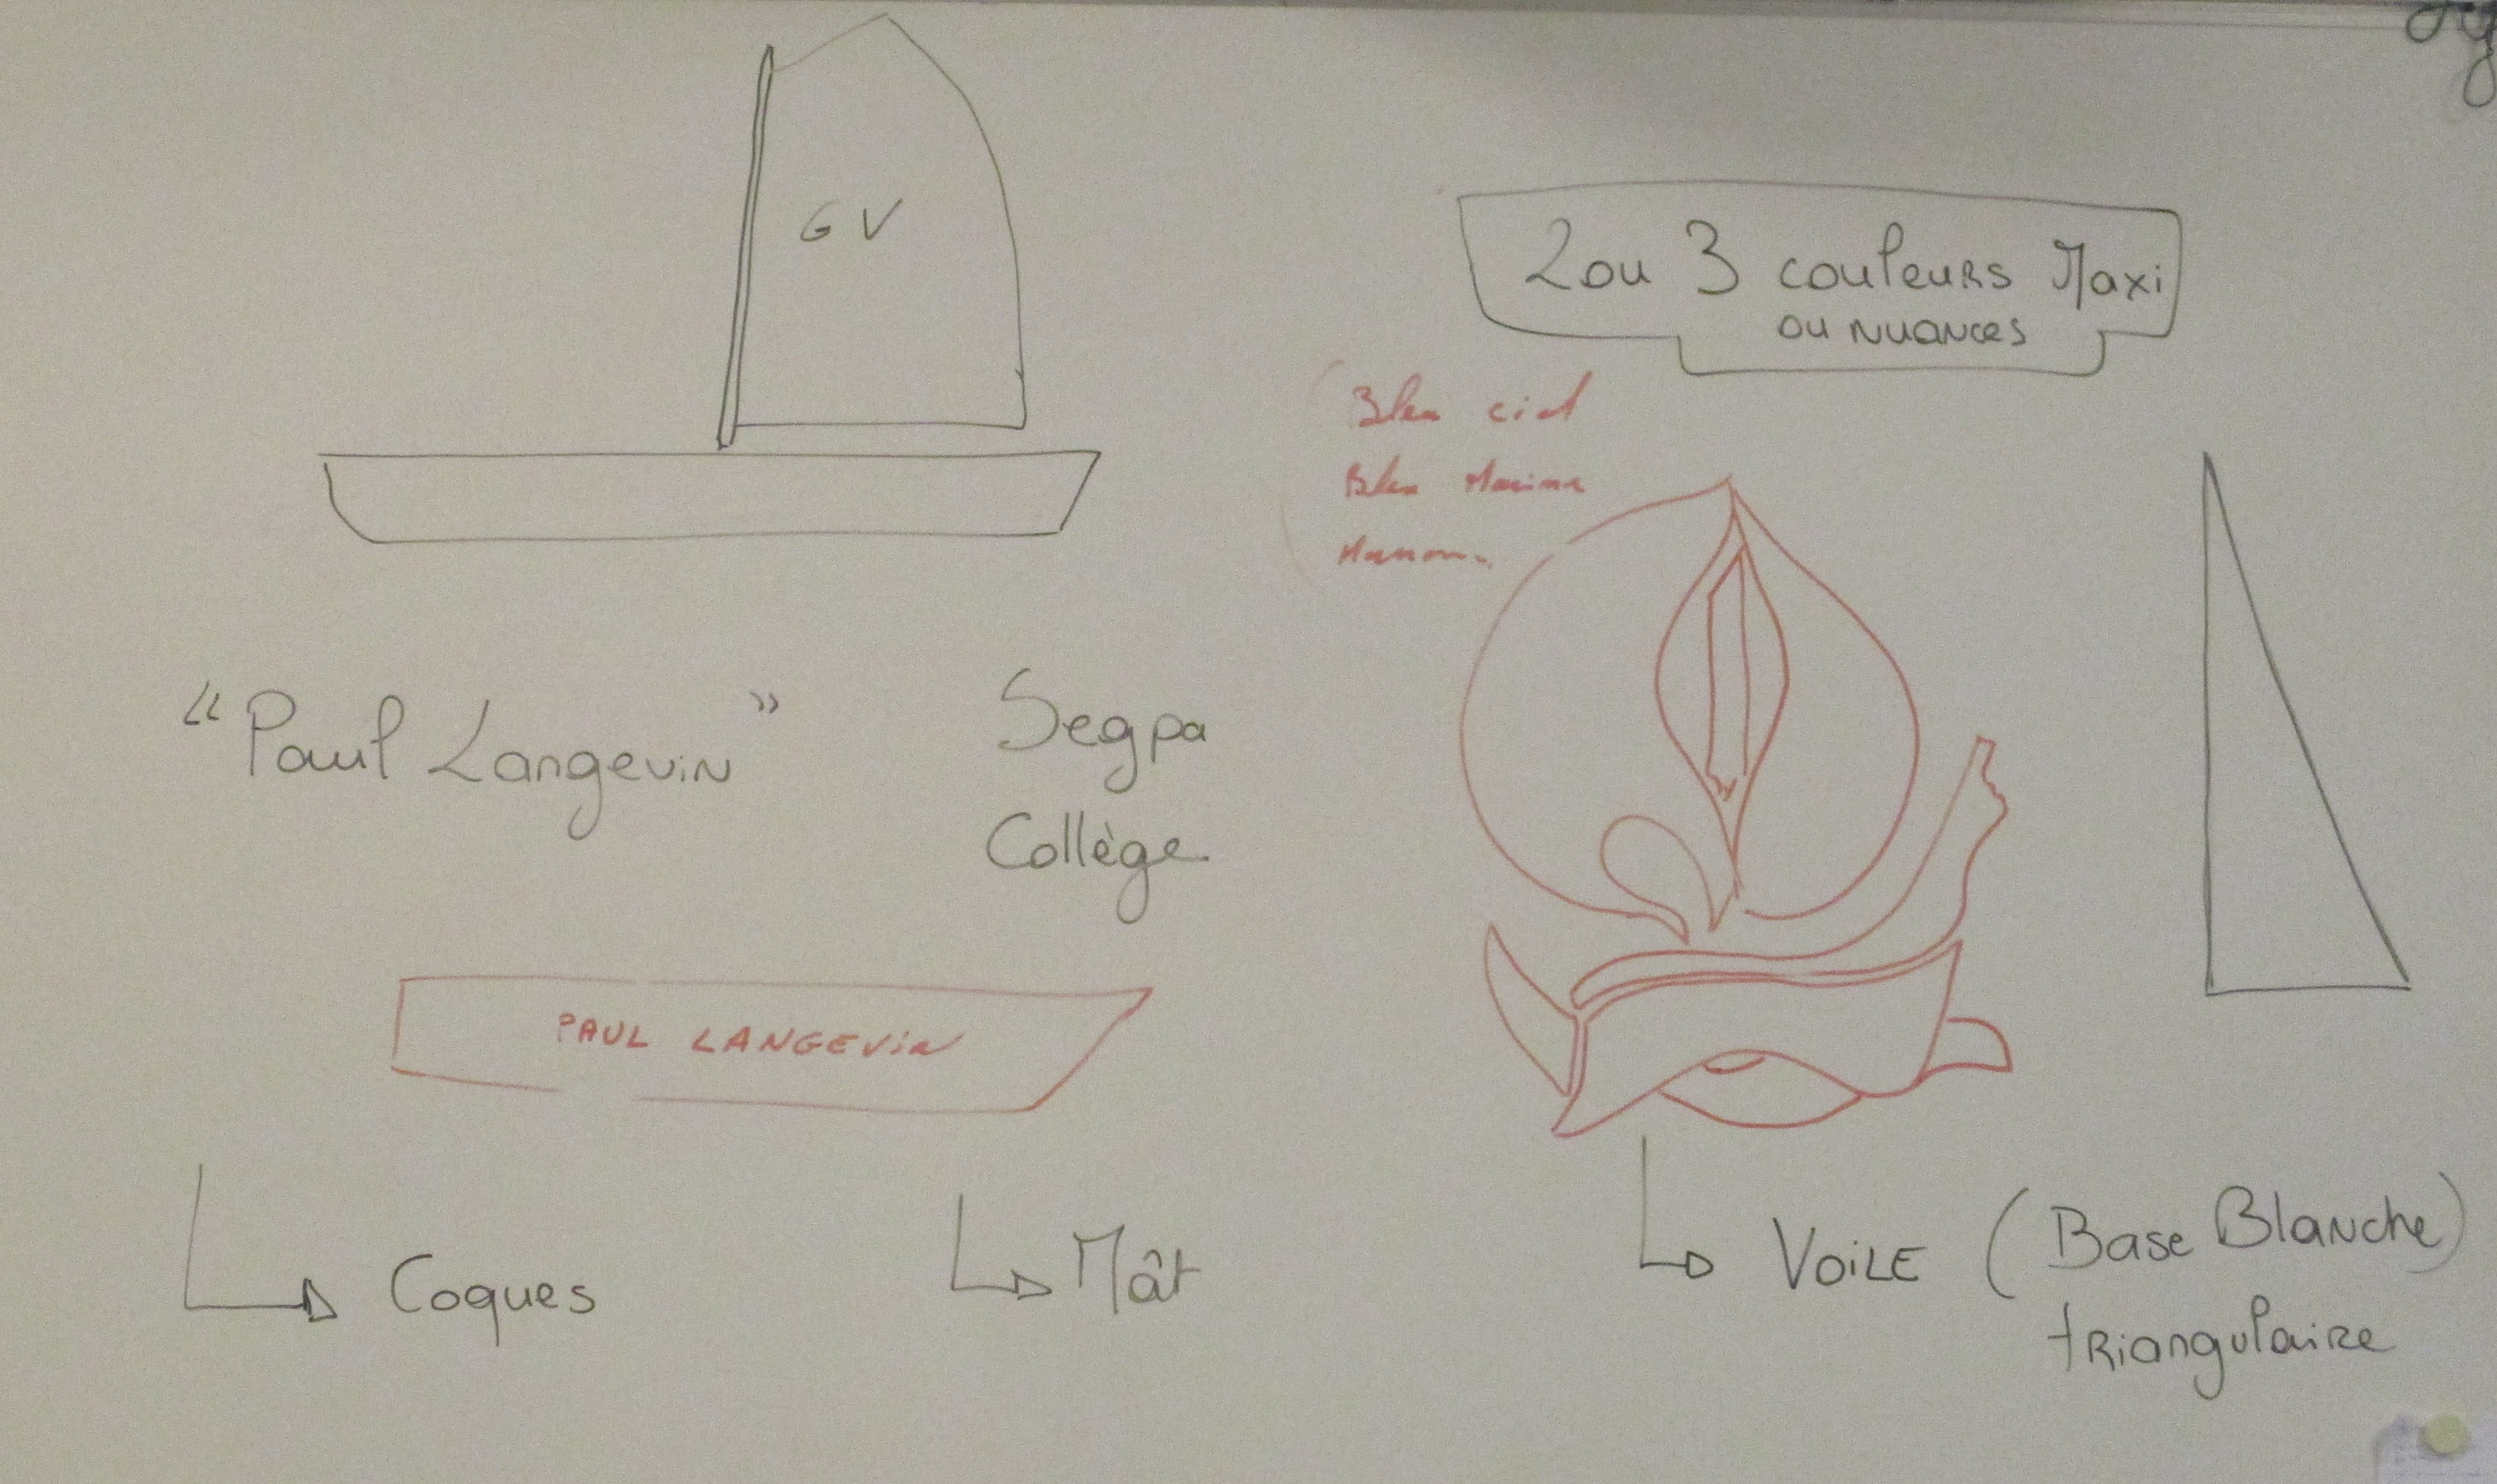 GV
2 ou 3 couleurs Maxi
ou nuances
Bleu ciel
Bleu Marine
"Paul Langevin"
Segpa
Collège
PAUL LANGEVIN
Coques
Mât
VOILE (Base Blanche)
triangulaire